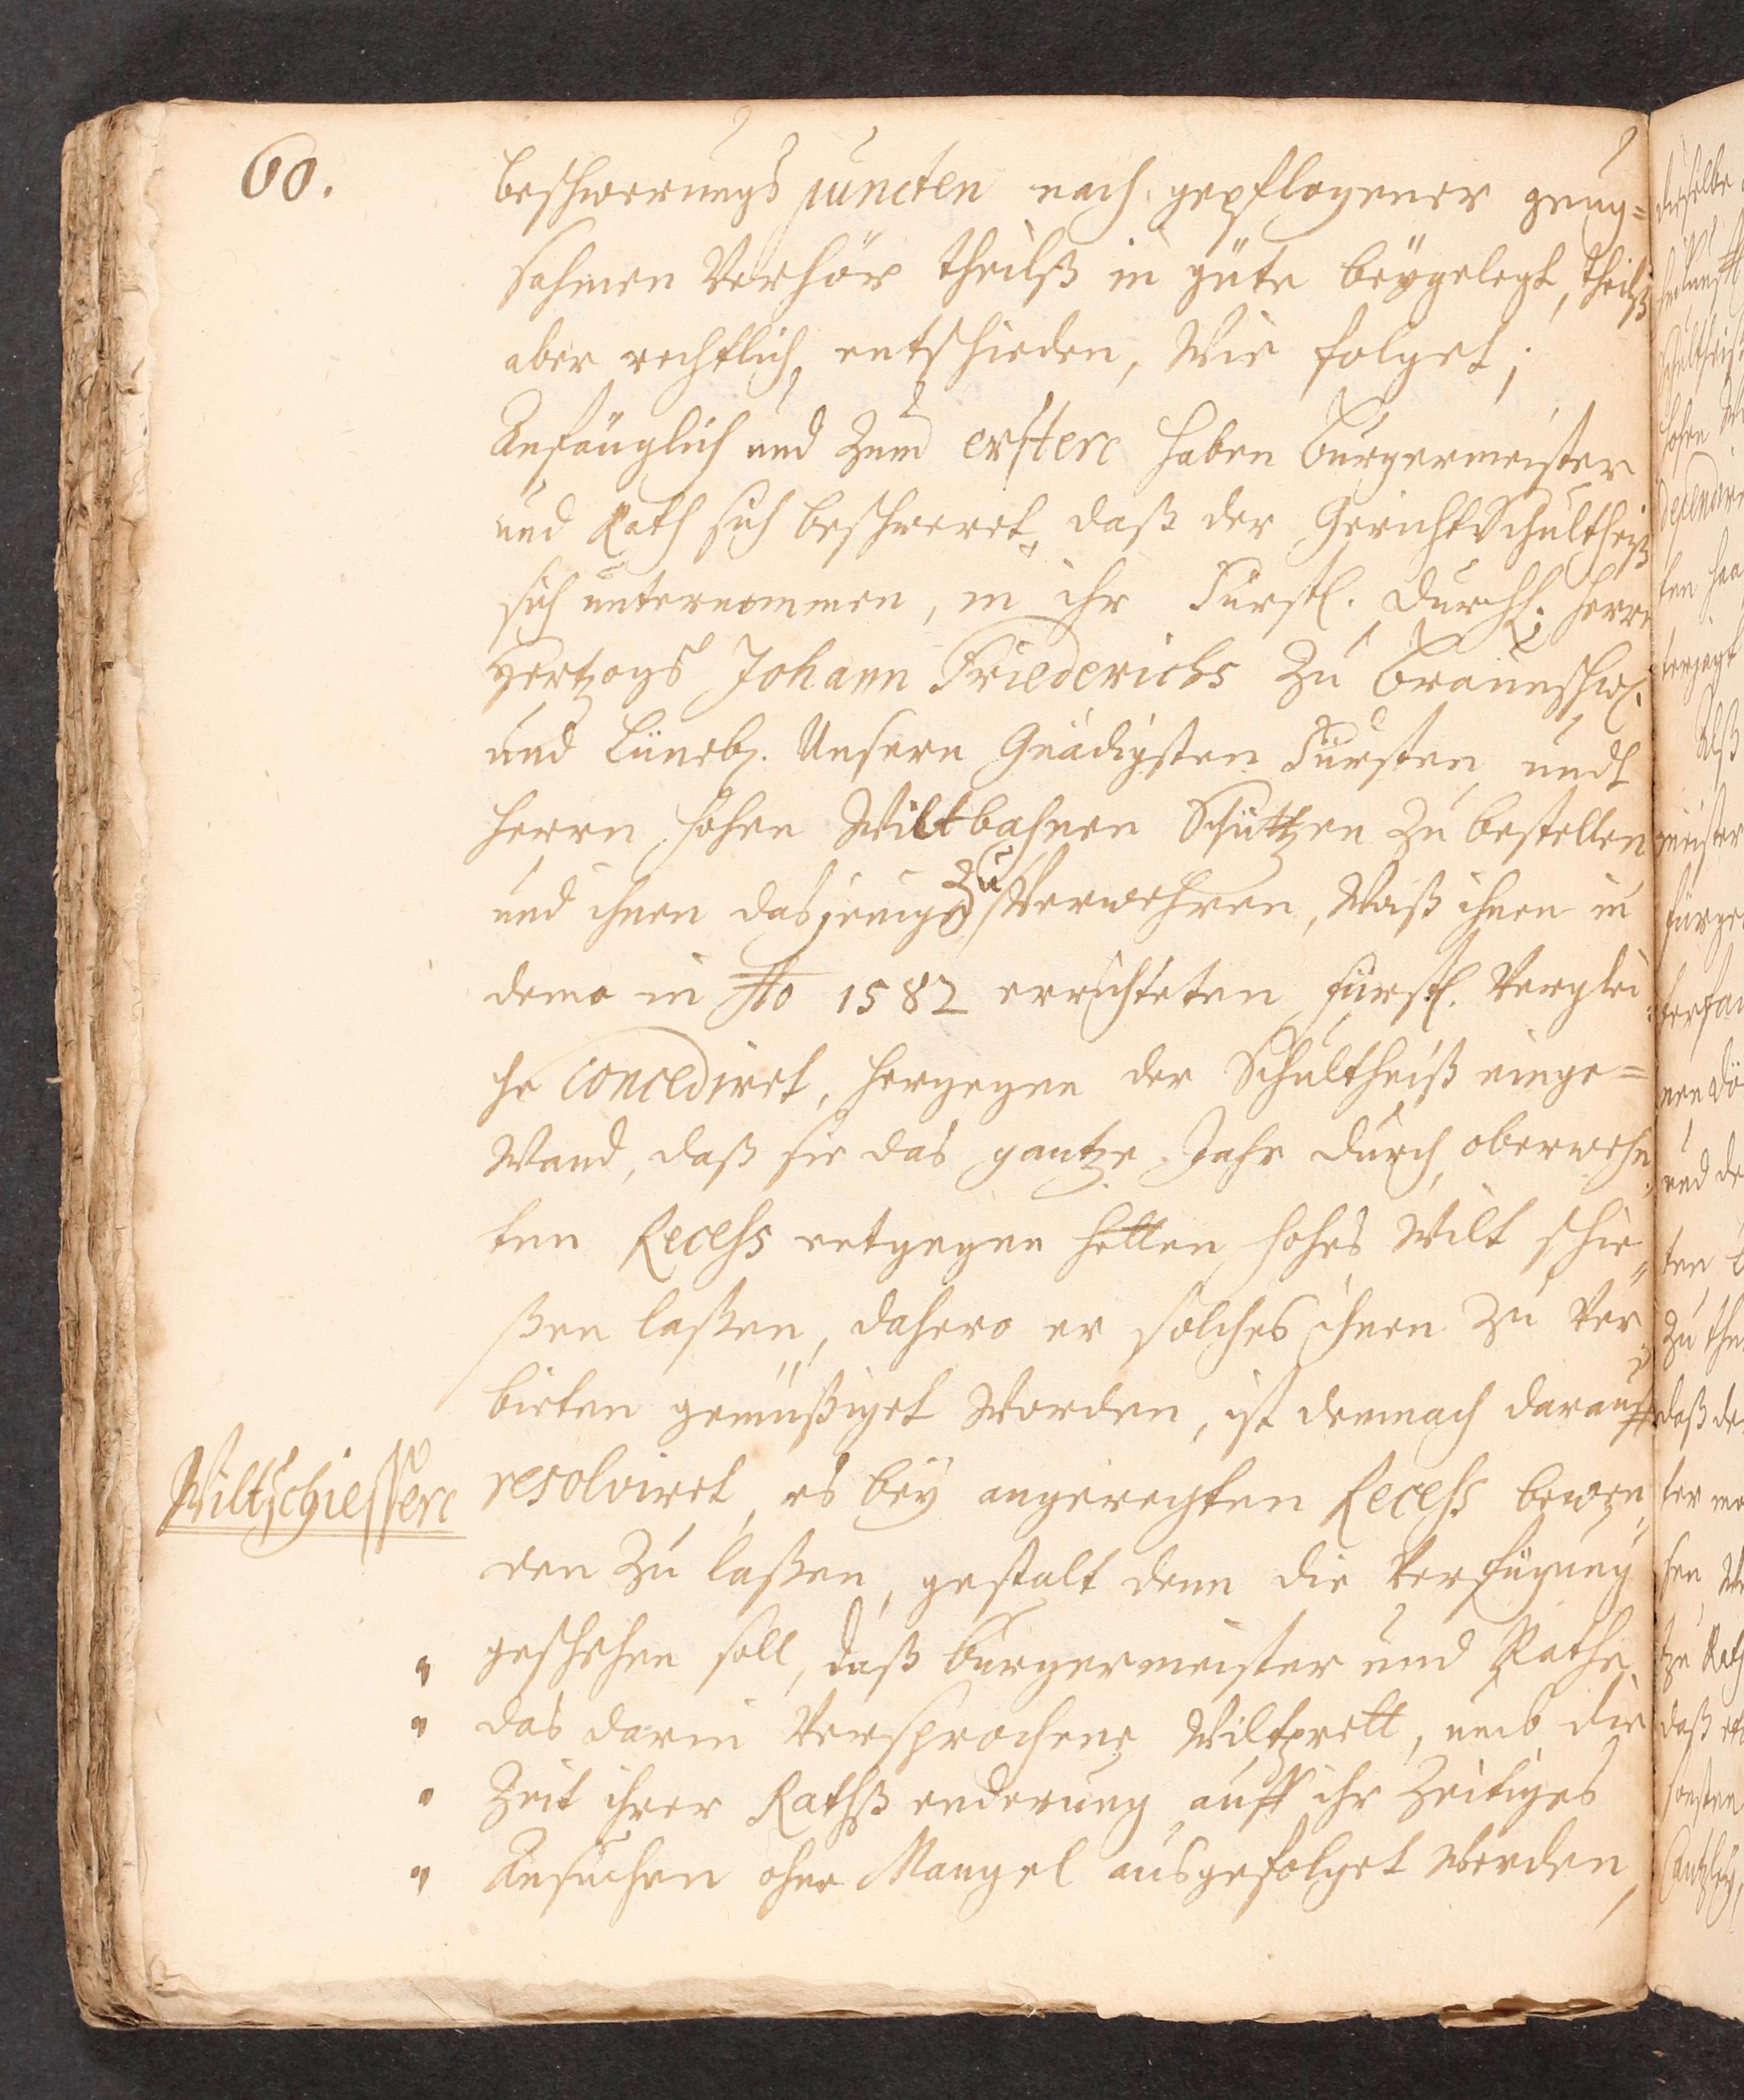 60.
beschwerungs puncten nach gepflogener gnug=
sahmen Verhör theilß in güte beÿgelegt, theilß
aber rechtlich entschieden, Wie folget;
Anfänglich und zum ersten haben Bürgermeister
und Rath sich beschweret, daß der Gericht Schultheiß
sich unternommen, in ihr Fürstl. Durchl. Herrn
Hertzogs Johann Friederichs zu Braunschw.
und Lüneb. Unsern Gnädigsten Fürsten undt
Herrn hohen Wiltbahnen Schützen zu bestellen
und ihnen dasjenige zu Verwehren, Waß ihnen in
deme in Ao 1582 errichteten fürstl. Verglei
che concediret, hergegen der Schultheiß einge=
Wand, daß sie das gantze Jahr durch, oberwehn
ten Recess entgegen hetten hohes Wilt schie
ßen laßen, dahero er solches ihnen zu Ver
bieten gemüßiget Worden, ist demnach darauff
Wiltschiessen
resolviret, es beÿ angeregten Recess bewen
den zu laßen, gestalt denn die Verfügung
" geschehen soll, daß Bürgermeister und Rathe
" das darin Versprochene Wiltprett, umb die
" Zeit ihrer Rathß enderung auff ihr Zeitiges
" Ansuchen ohne Mangel ausgefolget Werden,